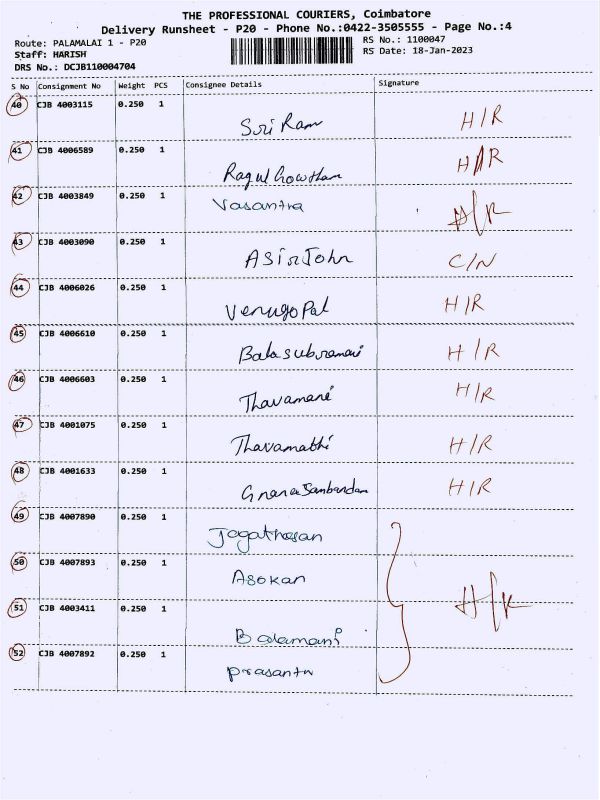 THE PROFESSIONAL COURIERS, Coimbatore
Delivery Runsheet - P20 - Phone No.:0422-3505555 - Page No.:4
Route: PALAMALAI 1 - P20 RS No.: 1100047
Staff: HARISH RS Date: 18-Jan-2023
DRS No.: DCJB110004704
S No Consignment No Weight PCS Consignee Details Signature
40 CJB 4003115 0.250 1
Sri Ram H/R
41 CJB 4006589 0.250 1
Ragul Gowtham H/R
42 CJB 4003849 0.250 1
Vasantha H/R
43 CJB 4003090 0.250 1
Asir John C/N
44 CJB 4006026 0.250 1
Venugopal H/R
45 CJB 4006610 0.250 1
Balasubramani H/R
46 CJB 4006603 0.250 1
Thavamani H/R
47 CJB 4001075 0.250 1
Thavamathi H/R
48 CJB 4001633 0.250 1
Gnanasambandam H/R
49 CJB 4007890 0.250 1
Jegathesan
50 CJB 4007893 0.250 1
Asokan
51 CJB 4003411 0.250 1 H/R
Balamani
52 CJB 4007892 0.250 1
Prasanth